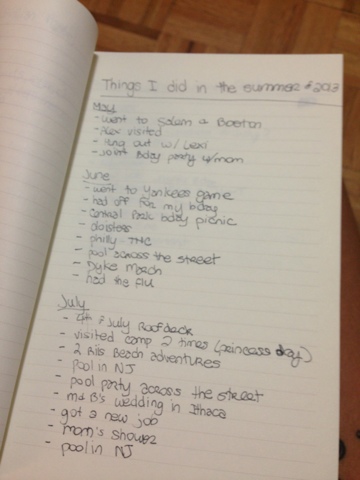 Things I did in the summer of 2013
May
- went to Salem & Boston
- Alex visited
- Hung out w/ Lexi
- joint Bday party w/mom
June
- went to Yankees game
- had off for my bday
- Central Park bday picnic
- cloisters
- philly TNC
- pool across the street
- Dyke March
- had the flu
July
- 4th of July Roofdeck
- visited camp 2 times (princess day)
- 2 Riis Beach adventures
- Pool in NJ
- pool party across the street
- M& B's wedding in Ithaca
- got a new job
- mom's shower
- pool in NJ